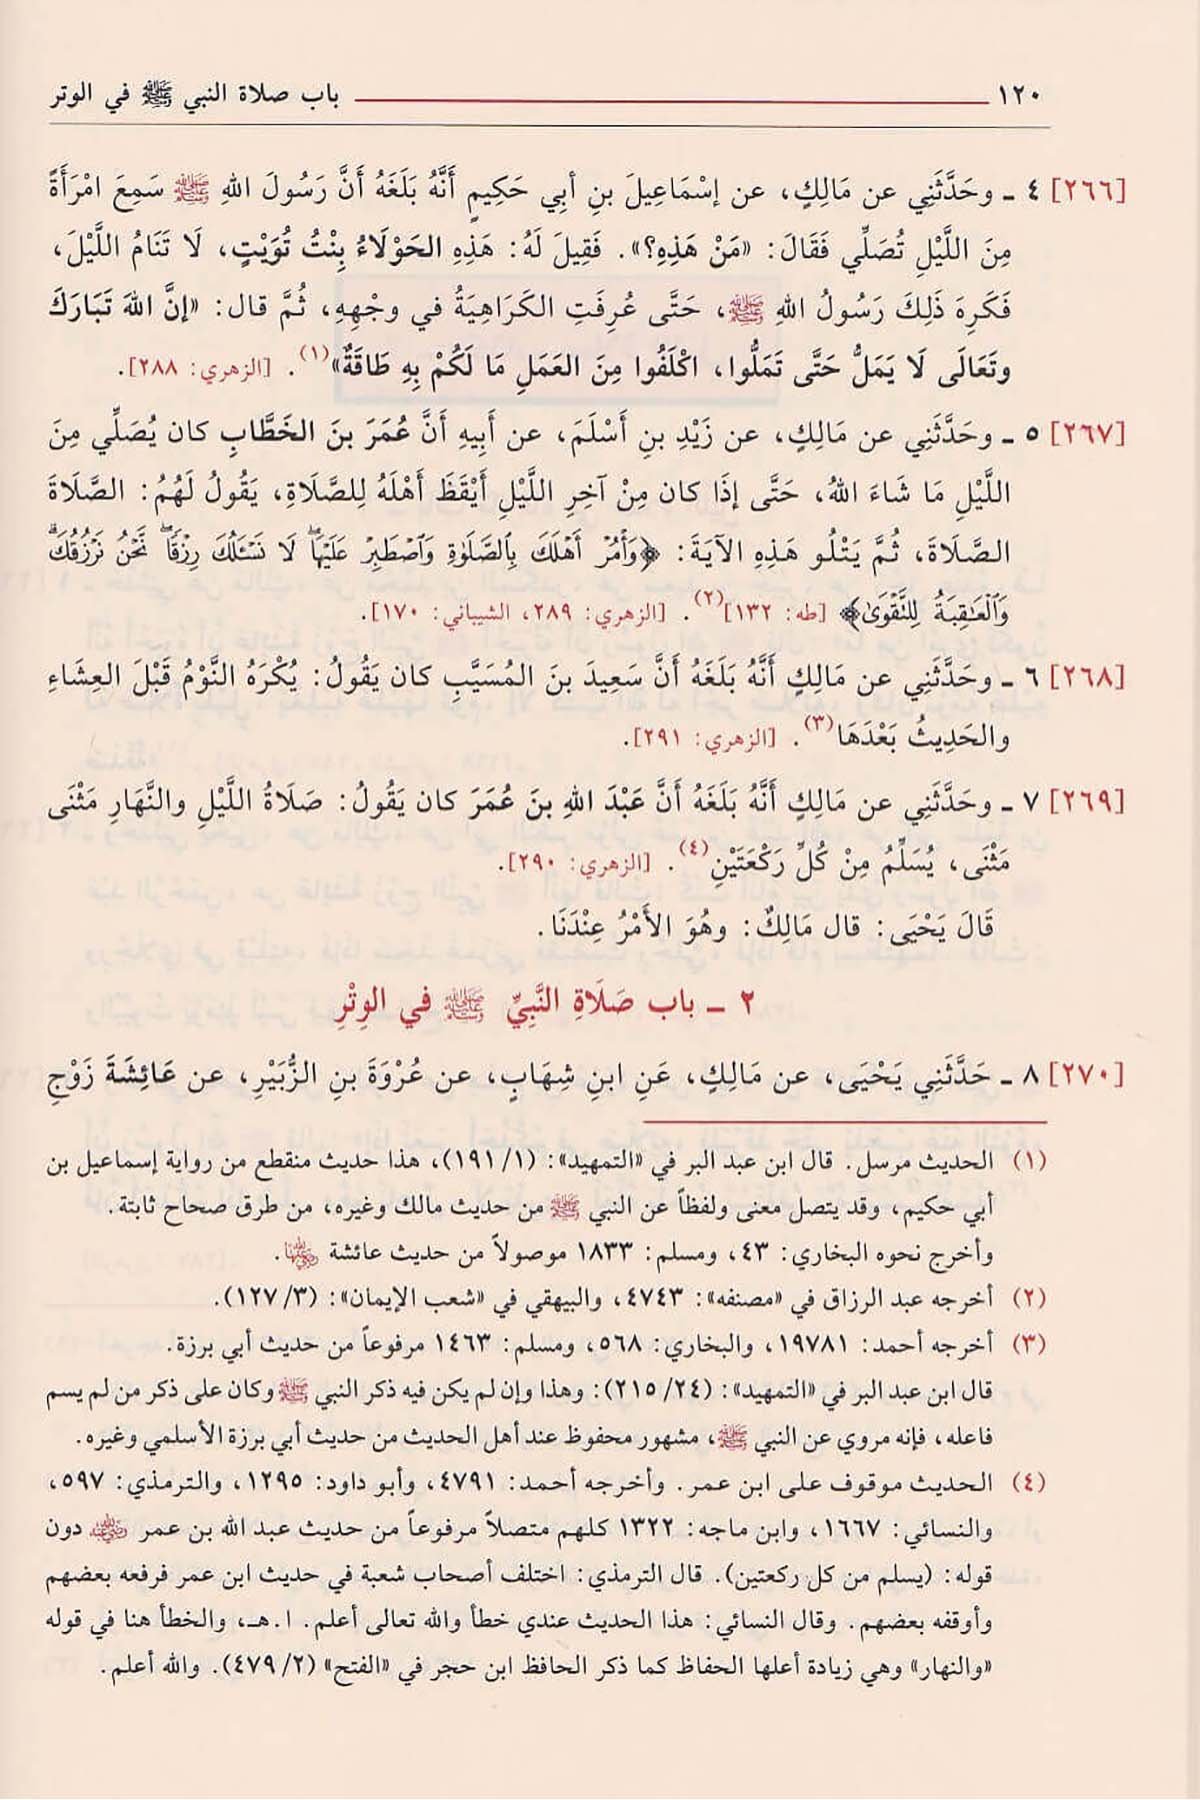 ١٢٠ باب صلاة النبي ﷺ في الوتر
[٢٦٦] ٤ ـ وحَدَّثَنِي عن مَالِكٍ، عن إسْمَاعِيلَ بنِ أبِي حَكِيمٍ أَنَّهُ بَلَغَهُ أَنَّ رَسُولَ اللهِ ﷺ سَمِعَ امْرَأَةً
مِنَ اللَّيْلِ تُصَلِّي فَقَالَ: «مَنْ هَذِهِ؟». فَقِيلَ لَهُ: هَذِهِ الحَوْلَاءُ بِنْتُ تُوَيْتٍ، لَا تَنَامُ اللَّيْلَ،
فَكَرِهَ ذَلِكَ رَسُولُ اللهِ ﷺ، حَتَّى عُرِفَتِ الكَرَاهِيَةُ في وجْهِهِ، ثُمَّ قال: «إنَّ اللهَ تَبَارَكَ
وتَعَالَى لَا يَمَلُّ حَتَّى تَمَلُّوا، اكْلَفُوا مِنَ العَمَلِ مَا لَكُمْ بِهِ طَاقَةٌ»(١). [الزهري: ٢٨٨].
[٢٦٧] ٥ ـ وحَدَّثَنِي عن مَالِكٍ، عن زَيْدِ بنِ أَسْلَمَ، عن أبِيهِ أَنَّ عُمَرَ بنَ الخَطَّابِ كان يُصَلِّي مِنَ
اللَّيْلِ مَا شَاءَ اللهُ، حَتَّى إذَا كان مِنْ آخِرِ اللَّيْلِ أَيْقَظَ أَهْلَهُ لِلصَّلَاةِ، يَقُولُ لَهُمُ: الصَّلَاةَ
الصَّلَاةَ، ثُمَّ يَتْلُو هَذِهِ الآيَةَ: ﴿وَأۡمُرۡ أَهۡلَكَ بِٱلصَّلَوٰةِ وَٱصۡطَبِرۡ عَلَيۡهَاۖ لَا نَسۡـَٔلُكَ رِزۡقٗاۖ نَّحۡنُ نَرۡزُقُكَۗ
وَٱلۡعَٰقِبَةُ لِلتَّقۡوَىٰ﴾ [طه: ١٣٢](٢). [الزهري: ٢٨٩، الشيباني: ١٧٠].
[٢٦٨] ٦ ـ وحَدَّثَنِي عن مَالِكٍ أَنَّهُ بَلَغَهُ أَنَّ سَعِيدَ بنَ المُسَيَّبِ كان يَقُولُ: يُكْرَهُ النَّوْمُ قَبْلَ العِشَاءِ
والحَدِيثُ بَعْدَهَا(٣). [الزهري: ٢٩١].
[٢٦٩] ٧ ـ وحَدَّثَنِي عن مَالِكٍ أَنَّهُ بَلَغَهُ أَنَّ عَبْدَ اللهِ بنَ عُمَرَ كان يَقُولُ: صَلَاةُ اللَّيْلِ والنَّهَارِ مَثْنَى
مَثْنَى، يُسَلِّمُ مِنْ كُلِّ رَكْعَتَيْنِ(٤). [الزهري: ٢٩٠].
قَالَ يَحْيَى: قال مَالِكٌ: وهُوَ الأَمْرُ عِنْدَنَا.
٢ ـ باب صَلَاةِ النَّبِيِّ ﷺ في الوِتْرِ
[٢٧٠] ٨ ـ حَدَّثَنِي يَحْيَى، عن مَالِكٍ، عَنِ ابنِ شِهَابٍ، عن عُرْوَةَ بنِ الزُّبَيْرِ، عن عَائِشَةَ زَوْجِ
(١) الحديث مرسل. قال ابن عبد البر في «التمهيد»: (١/ ١٩١)، هذا حديث منقطع من رواية إسماعيل بن
أبي حكيم، وقد يتصل معنى ولفظاً عن النبي ﷺ من حديث مالك وغيره، من طرق صحاح ثابتة.
وأخرج نحوه البخاري: ٤٣، ومسلم: ١٨٣٣ موصولاً من حديث عائشة رضي الله عنها.
(٢) أخرجه عبد الرزاق في «مصنفه»: ٤٧٤٣، والبيهقي في «شعب الإيمان»: (٣/ ١٢٧).
(٣) أخرجه أحمد: ١٩٧٨١، والبخاري: ٥٦٨، ومسلم: ١٤٦٣ مرفوعاً من حديث أبي برزة.
قال ابن عبد البر في «التمهيد»: (٢٤/ ٢١٥): وهذا وإن لم يكن فيه ذكر النبي ﷺ وكان على ذكر من لم يسم
فاعله، فإنه مروي عن النبي ﷺ، مشهور محفوظ عند أهل الحديث من حديث أبي برزة الأسلمي وغيره.
(٤) الحديث موقوف على ابن عمر. وأخرجه أحمد: ٤٧٩١، وأبو داود: ١٢٩٥، والترمذي: ٥٩٧،
والنسائي: ١٦٦٧، وابن ماجه: ١٣٢٢ كلهم متصلاً مرفوعاً من حديث عبد الله بن عمر رضي الله عنه دون
قوله: (يسلم من كل ركعتين). قال الترمذي: اختلف أصحاب شعبة في حديث ابن عمر فرفعه بعضهم
وأوقفه بعضهم. وقال النسائي: هذا الحديث عندي خطأ والله تعالى أعلم. ا.هـ، والخطأ هنا في قوله
«والنهار» وهي زيادة أعلها الحفاظ كما ذكر الحافظ ابن حجر في «الفتح» (٢/ ٤٧٩). والله أعلم.